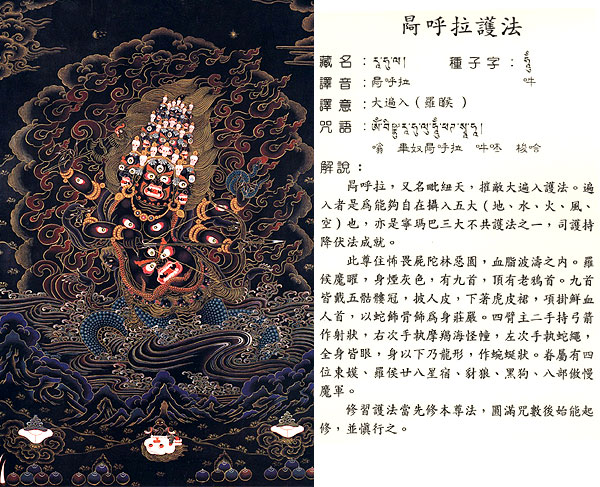 咼呼拉護法
藏名：རཱ་ཧུ་ལ། 種子字：ཧཱུྃ
譯音：咼呼拉 吽
譯意：大遍入（羅睺）
咒語：
嗡 畢奴咼呼拉 吽呸 梭哈
解說：
咼呼拉，又名毗紐天，摧敵大遍入護法。遍
入者是為能夠自在攝入五大（地、水、火、風、
空）也，亦是寧瑪巴三大不共護法之一，司護持
降伏法成就。
此尊住怖畏屍陀林惡園，血脂波濤之內。羅
候魔曜，身煙灰色，有九首，頂有老鴉首。九首
皆戴五骷髏冠，披人皮，下著虎皮裙，項掛鮮血
人首，以蛇飾骨飾為身莊嚴。四臂主二手持弓箭
作射狀，右次手執摩羯海怪幢，左次手執蛇繩，
全身皆眼，身以下乃龍形，作蜿蜒狀。眷屬有四
位東媒、羅侯廿八星宿、豺狼、黑狗、八部傲慢
魔軍。
修習護法當先修本尊法，圓滿咒數後始能起
修，並慎行之。